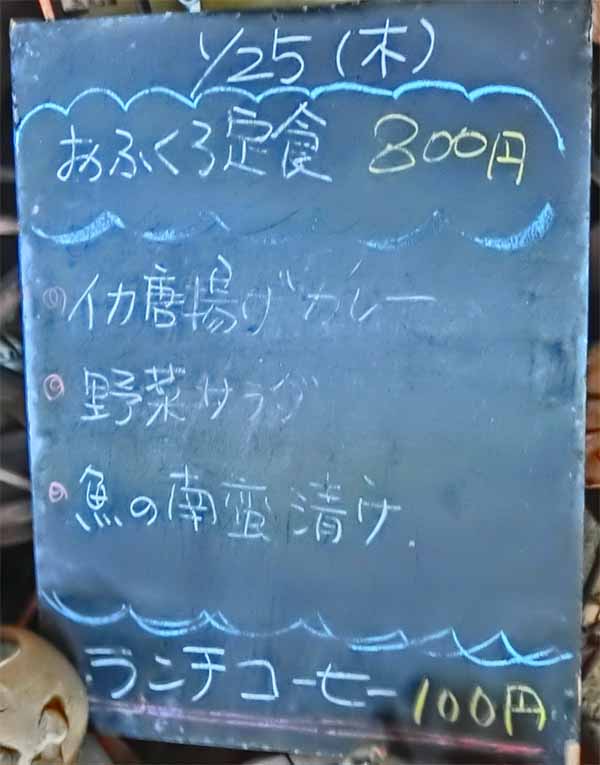 1/25(木)
おふくろ定食 800円
イカ唐揚げカレー
野菜サラダ
魚の南蛮清け
ランチコーヒー 100円